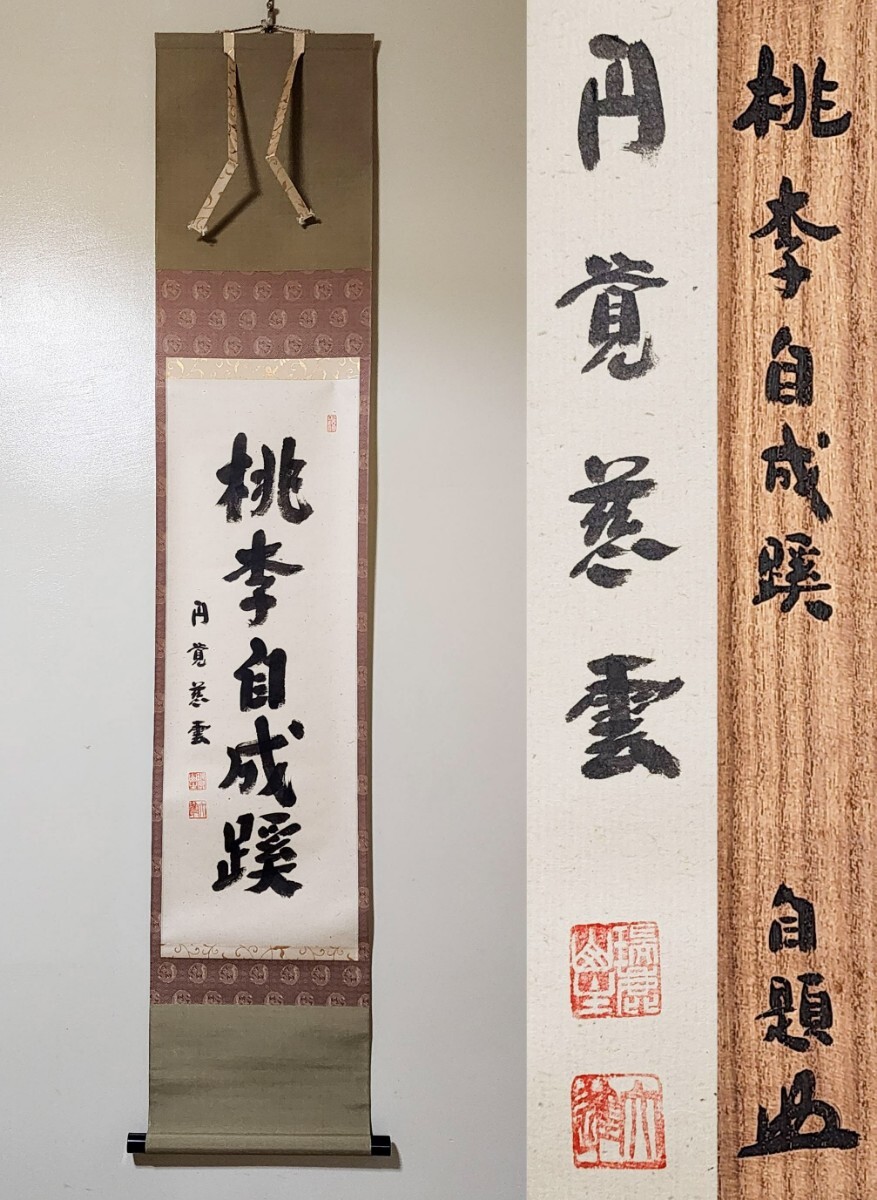 桃李自成蹊
円覚慈雲
円覚慈雲
瑞鹿山主
桃李自成蹊
自題